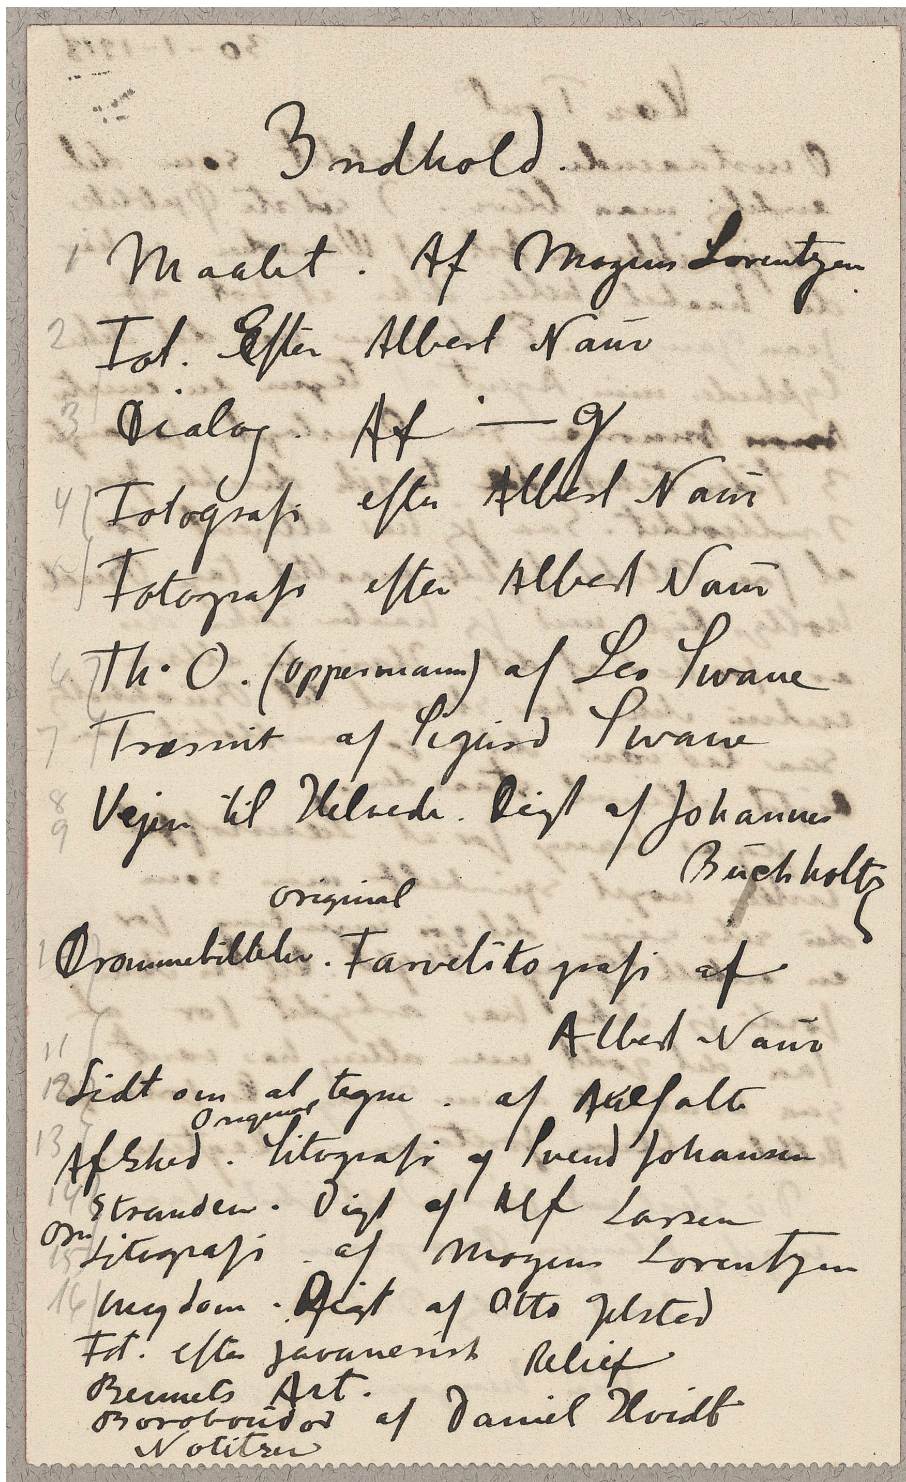 Indhold.
1 Maalet. Af Mogens Lorentzen.
2 Fot. Efter Albert Naur
3 Dialog. Af — g
4 Fotografi efter Albert Naur
5 Fotografi efter Albert Naur
6 Th. O. (Oppermann) af Leo Swane
7 Træsnit af Sigurd Swane
8 Vejen til Helvede. Digt af Johannes
9 Buchholtz
original
Drømmebilleder. Farvelitografi af
11 Albert Naur
12 Lidt om at tegne. af Axel Salto
Original
13 Afsked. Litografi af Svend Johansen
14 Stranden. Digt af Alf Larsen
Ori Litografi af Mogens Lorentzen
15
16 Ungdom. Digt af Otto Gelsted
Fot. efter javanesisk Relief
Bennets Art.
Boroboudor af Daniel Hvidt
Notitser